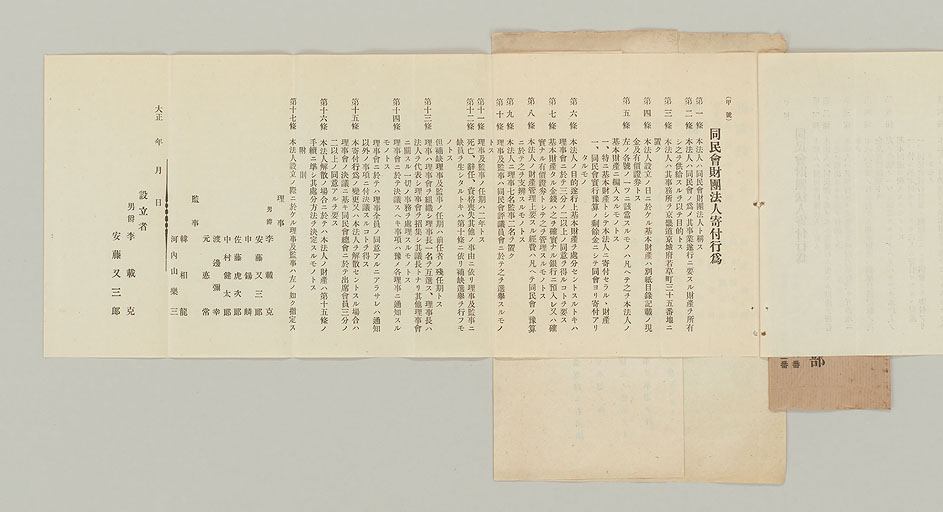 （甲號）
同民會財團法人寄付行爲
第一條　本法人ハ同民會財團法人ト稱ス
第二條　本法人ハ同民會ノ爲メ其事業遂行ニ要スル財產ヲ所有
シ之ヲ供給スルヲ以テ目的トス
第三條　本法人ハ其事務所ヲ京畿道京城府若草町三十五番地ニ
置ク
第四條　本法人設立ノ日ニ於ケル基本財產ハ別紙目錄記載ノ現
金及有價證券トス
第五條　左ノ各號ノ一ツニ該當スルモノハ凡ヘテ之ヲ本法人ノ
基本財產ニ編入スルモノトス
一、特ニ基本財產トシテ本法人ニ寄付セラル、財產
一、同民會實行豫算ノ剩餘金ニシテ同會ヨリ寄付アリ
タルモノ
第六條　本法人ノ目的遂行上基本財產ヲ處分セントスルトキハ
理事會ニ於テ三分ノ二以上ノ同意ヲ得ルコトヲ要ス
第七條　基本財產タル金錢ハ之ヲ確實ナル銀行ニ預入レ又ハ確
實ナル有價證券トシテ之ヲ管理スルモノトス
第八條　本法人ノ財產管理上ニ要スル經費ハ凡ヘテ同民會ノ豫算
ニ於テ之ヲ支辨スルモノトス
第九條　本法人ニ理事七名監事二名ヲ置ク
第十條　理事及監事ハ同民會評議員會ニ於テ之ヲ選擧スルモノ
トス
第十一條　理事及監事ノ任期ハ二年トス
第十二條　死亡、辭任、資格喪失其他ノ事由ニ依リ理事及監事ニ
缺員ヲ生シタルトキハ第十條ニ依リ補缺選擧ヲ行フモ
ノトス
但補缺理事及監事ノ任期ハ前任者ノ殘任期トス
第十三條　理事ハ理事會ヲ組織シ理事長一名ヲ互選ス、理事長ハ
法人ヲ代表シ理事會ヲ招集シ其議長トナリ其他理事會
ニ關スル一切ノ事務ヲ處理スルモノトス
第十四條　理事會ニ於テ決議スヘキ事項ハ豫メ各理事ニ通知スル
モノトス
理事會ニ於テハ理事全員ノ同意アルニアラサレハ通知
以外ノ事項ニ付決議スルコトヲ得ス
第十五條　本寄付行爲ノ變更又ハ本法人ヲ解散セントスル場合ハ
理事會ノ決議ニ基キ同民會總會ニ於テ出席會員三分ノ
二以上ノ同意アルヲ要ス
第十六條　本法人解散ノ場合ニ於テハ本法人ノ財產ハ第十五條ノ
手續ニ準シ其處分方法ヲ決定スルモノトス
附則
第十七條　本法人設立ノ際ニ於ケル理事及監事ハ左ノ如ク指定ス
理事
男爵　李載克
安藤又三郎
申錫麟
佐藤虎次郎
中村健太郎
渡邊彌幸
元悳常
監事
韓相龍
河內山樂三
大正　年　月　日
設立者
男爵　李載克
安藤又三郎
部
番
番